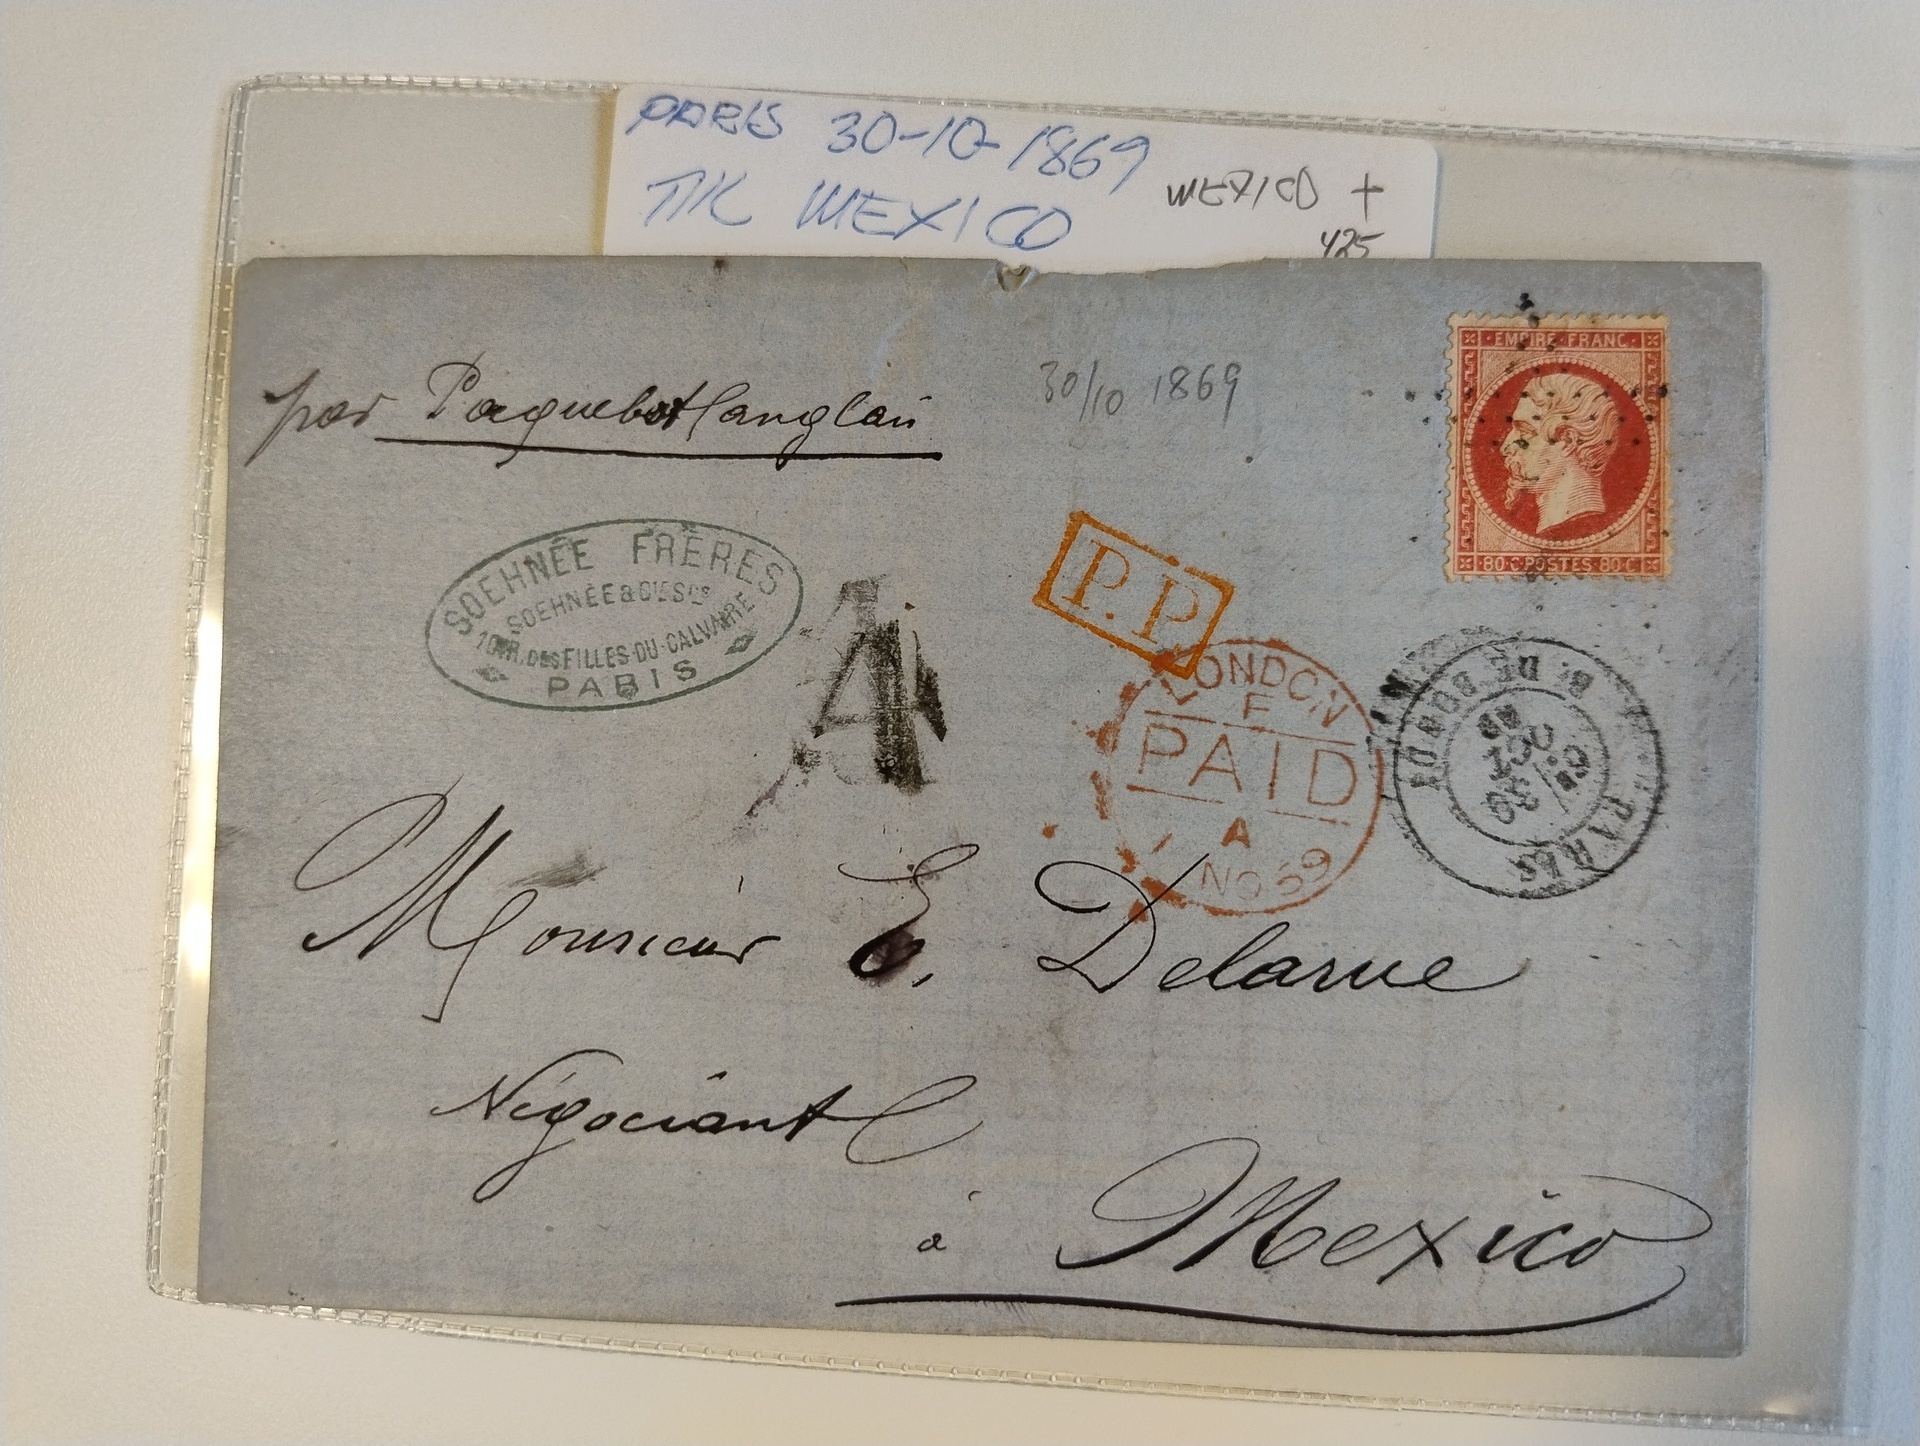 PARIS 30-10-1869
TIL MEXICO
MEXICO +
425
par Paquebot anglais
30/10 1869
EMPIRE FRANC
80 C POSTES 80 C
SOEHNÉE FRÈRES
SOEHNÉE & CIE SRS
10 R. DES FILLES-DU-CALVAIRE
PARIS
P.P
LONDON
F
PAID
A
NO 69
PARIS
B. DE
OCT
69
Monsieur E. Delarue
Négociant
à Mexico